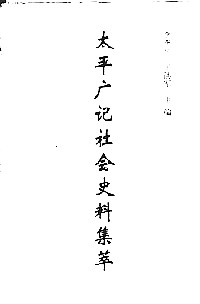 太平广记社会史料集萃